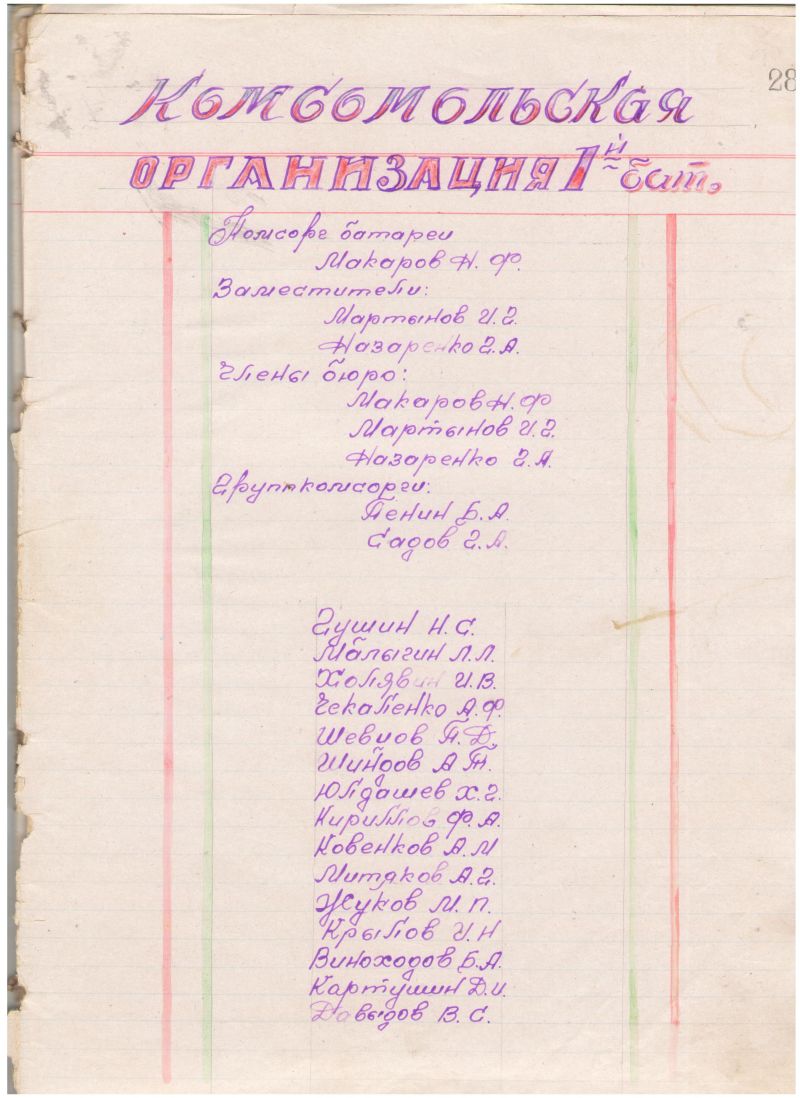 28
Комсомольская
ОРГАНИЗАЦИЯ 1й бат.
Комсорг батареи
Макаров Н. Ф.
Заместители:
Мартынов И. Г.
Назаренко Г. А.
Члены бюро:
Макаров Н. Ф
Мартынов И. Г.
Назаренко Г. А.
Группкомсорги:
Пенин Б. А.
Садов Г. А.
Гущин Н. С.
Малыгин Л. Л.
Холявин И. В.
Чекаленко А. Ф.
Шевцов П. Д.
Шиндов А. Т.
Юлдашев Х. Г.
Кириллов Ф. А.
Ковенков А. М
Митяков А. Г.
Жуков М. П.
Крылов И. Н
Виноходов Б. А.
Картушин Д. И.
Давыдов В. С.